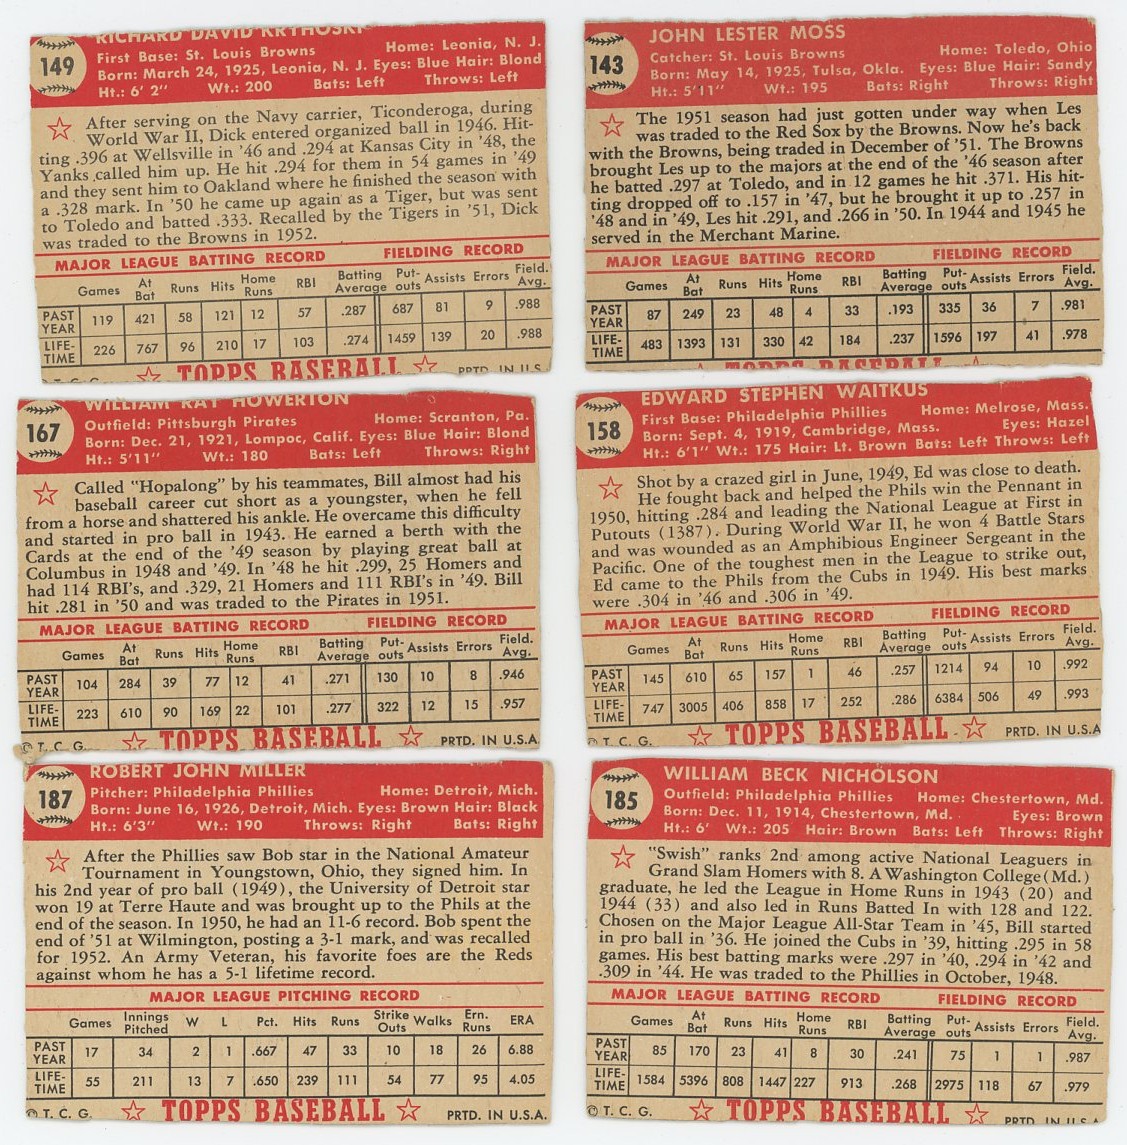 RICHARD DAVID KRYHOSKI
149
First Base: St. Louis Browns Home: Leonia, N. J.
Born: March 24, 1925, Leonia, N. J. Eyes: Blue Hair: Blond
Ht.: 6' 2" Wt.: 200 Bats: Left Throws: Left
After serving on the Navy carrier, Ticonderoga, during
World War II, Dick entered organized ball in 1946. Hit-
ting .396 at Wellsville in '46 and .294 at Kansas City in '48, the
Yanks called him up. He hit .294 for them in 54 games in '49
and they sent him to Oakland where he finished the season with
a .328 mark. In '50 he came up again as a Tiger, but was sent
to Toledo and batted .333. Recalled by the Tigers in '51, Dick
was traded to the Browns in 1952.
MAJOR LEAGUE BATTING RECORD FIELDING RECORD
Games At Bat Runs Hits Home Runs RBI Batting Average Put-outs Assists Errors Field. Avg.
PAST YEAR 119 421 58 121 12 57 .287 687 81 9 .988
LIFE-TIME 226 767 96 210 17 103 .274 1459 139 20 .988
T. C. G. TOPPS BASEBALL PRTD. IN U.S.
JOHN LESTER MOSS
143
Catcher: St. Louis Browns Home: Toledo, Ohio
Born: May 14, 1925, Tulsa, Okla. Eyes: Blue Hair: Sandy
Ht.: 5'11" Wt.: 195 Bats: Right Throws: Right
The 1951 season had just gotten under way when Les
was traded to the Red Sox by the Browns. Now he's back
with the Browns, being traded in December of '51. The Browns
brought Les up to the majors at the end of the '46 season after
he batted .297 at Toledo, and in 12 games he hit .371. His hit-
ting dropped off to .157 in '47, but he brought it up to .257 in
'48 and in '49, Les hit .291, and .266 in '50. In 1944 and 1945 he
served in the Merchant Marine.
MAJOR LEAGUE BATTING RECORD FIELDING RECORD
Games At Bat Runs Hits Home Runs RBI Batting Average Put-outs Assists Errors Field. Avg.
PAST YEAR 87 249 23 48 4 33 .193 335 36 7 .981
LIFE-TIME 483 1393 131 330 42 184 .237 1596 197 41 .978
TOPPS BASEBALL
WILLIAM RAY HOWERTON
167
Outfield: Pittsburgh Pirates Home: Scranton, Pa.
Born: Dec. 21, 1921, Lompoc, Calif. Eyes: Blue Hair: Blond
Ht.: 5'11" Wt.: 180 Bats: Left Throws: Right
Called "Hopalong" by his teammates, Bill almost had his
baseball career cut short as a youngster, when he fell
from a horse and shattered his ankle. He overcame this difficulty
and started in pro ball in 1943. He earned a berth with the
Cards at the end of the '49 season by playing great ball at
Columbus in 1948 and '49. In '48 he hit .299, 25 Homers and
had 114 RBI's, and .329, 21 Homers and 111 RBI's in '49. Bill
hit .281 in '50 and was traded to the Pirates in 1951.
MAJOR LEAGUE BATTING RECORD FIELDING RECORD
Games At Bat Runs Hits Home Runs RBI Batting Average Put-outs Assists Errors Field. Avg.
PAST YEAR 104 284 39 77 12 41 .271 130 10 8 .946
LIFE-TIME 223 610 90 169 22 101 .277 322 12 15 .957
© T. C. G. TOPPS BASEBALL PRTD. IN U.S.A.
EDWARD STEPHEN WAITKUS
158
First Base: Philadelphia Phillies Home: Melrose, Mass.
Born: Sept. 4, 1919, Cambridge, Mass. Eyes: Hazel
Ht.: 6'1" Wt.: 175 Hair: Lt. Brown Bats: Left Throws: Left
Shot by a crazed girl in June, 1949, Ed was close to death.
He fought back and helped the Phils win the Pennant in
1950, hitting .284 and leading the National League at First in
Putouts (1387). During World War II, he won 4 Battle Stars
and was wounded as an Amphibious Engineer Sergeant in the
Pacific. One of the toughest men in the League to strike out,
Ed came to the Phils from the Cubs in 1949. His best marks
were .304 in '46 and .306 in '49.
MAJOR LEAGUE BATTING RECORD FIELDING RECORD
Games At Bat Runs Hits Home Runs RBI Batting Average Put-outs Assists Errors Field. Avg.
PAST YEAR 145 610 65 157 1 46 .257 1214 94 10 .992
LIFE-TIME 747 3005 406 858 17 252 .286 6384 506 49 .993
© T. C. G. TOPPS BASEBALL PRTD. IN U.S.A
ROBERT JOHN MILLER
187
Pitcher: Philadelphia Phillies Home: Detroit, Mich.
Born: June 16, 1926, Detroit, Mich. Eyes: Brown Hair: Black
Ht.: 6'3" Wt.: 190 Throws: Right Bats: Right
After the Phillies saw Bob star in the National Amateur
Tournament in Youngstown, Ohio, they signed him. In
his 2nd year of pro ball (1949), the University of Detroit star
won 19 at Terre Haute and was brought up to the Phils at the
end of the season. In 1950, he had an 11-6 record. Bob spent the
end of '51 at Wilmington, posting a 3-1 mark, and was recalled
for 1952. An Army Veteran, his favorite foes are the Reds
against whom he has a 5-1 lifetime record.
MAJOR LEAGUE PITCHING RECORD
Games Innings Pitched W L Pct. Hits Runs Strike Outs Walks Ern. Runs ERA
PAST YEAR 17 34 2 1 .667 47 33 10 18 26 6.88
LIFE-TIME 55 211 13 7 .650 239 111 54 77 95 4.05
© T. C. G. TOPPS BASEBALL PRTD. IN U.S.A.
WILLIAM BECK NICHOLSON
185
Outfield: Philadelphia Phillies Home: Chestertown, Md.
Born: Dec. 11, 1914, Chestertown, Md. Eyes: Brown
Ht.: 6' Wt.: 205 Hair: Brown Bats: Left Throws: Right
"Swish" ranks 2nd among active National Leaguers in
Grand Slam Homers with 8. A Washington College (Md.)
graduate, he led the League in Home Runs in 1943 (20) and
1944 (33) and also led in Runs Batted In with 128 and 122.
Chosen on the Major League All-Star Team in '45, Bill started
in pro ball in '36. He joined the Cubs in '39, hitting .295 in 58
games. His best batting marks were .297 in '40, .294 in '42 and
.309 in '44. He was traded to the Phillies in October, 1948.
MAJOR LEAGUE BATTING RECORD FIELDING RECORD
Games At Bat Runs Hits Home Runs RBI Batting Average Put-outs Assists Errors Field. Avg.
PAST YEAR 85 170 23 41 8 30 .241 75 1 1 .987
LIFE-TIME 1584 5396 808 1447 227 913 .268 2975 118 67 .979
© T. C. G. TOPPS BASEBALL PRTD. IN U.S.A